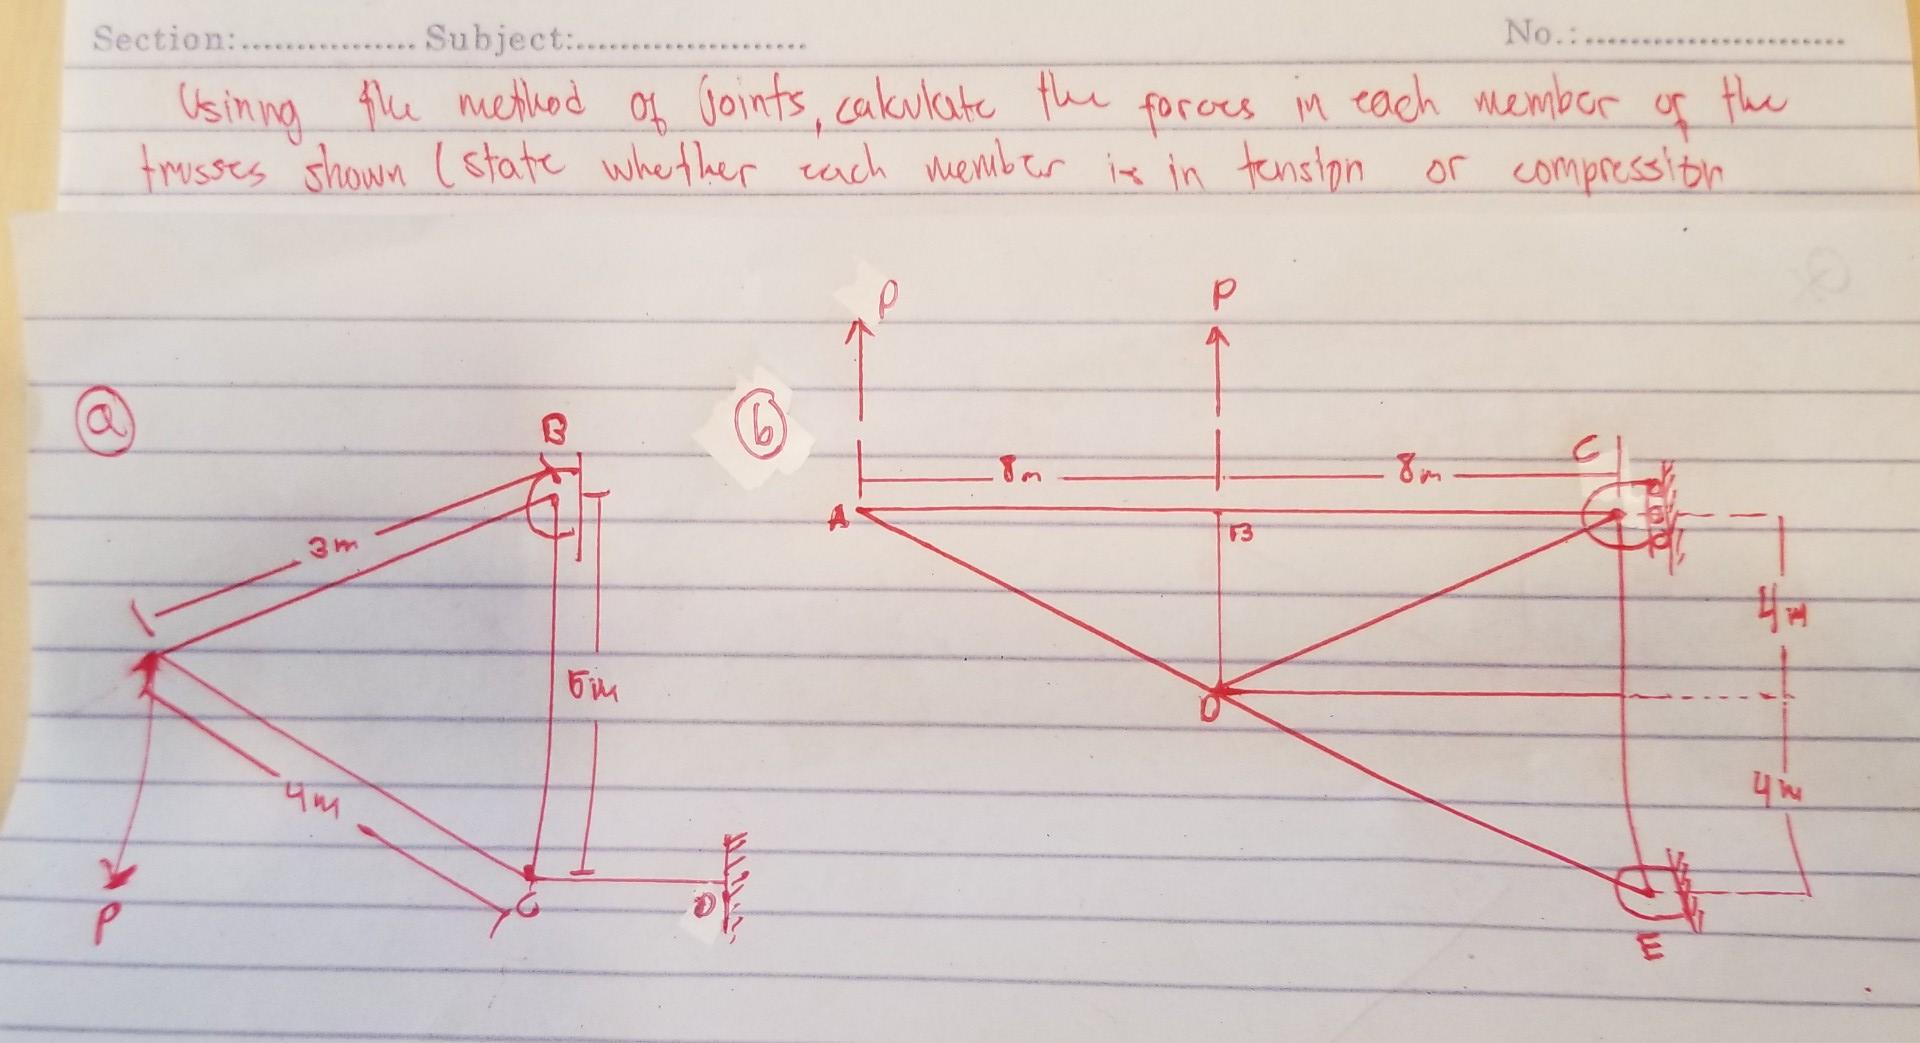 Section:................ Subject:...................... No.:........................
Usinng the method of Joints, calculate the forces in each member of the
trusses shown (state whether each member is in tension or compression
P P
a b
B C
8m 8m
A B
3m
4m
5m
D
4m
4m
C D
P
E